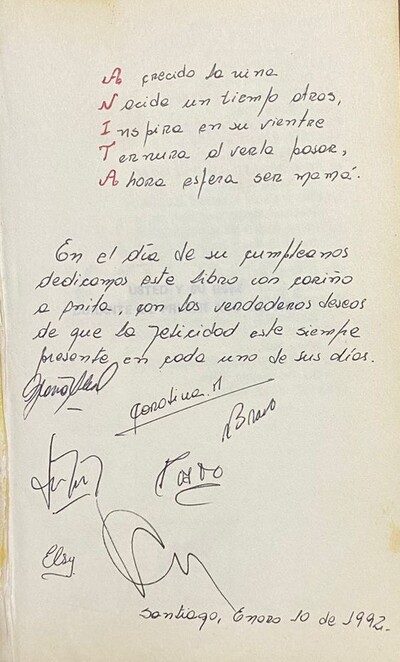 A crecido la niña
Nacida un tiempo atras,
Inspira en su vientre
Ternura al verla pasar,
Ahora espera ser mamá.
En el día de su cumpleaños
dedicamos este libro con cariño
a Anita, con los verdaderos deseos
de que la felicidad este siempre
presente en cada uno de sus días.
Carolina. M
Bravo
Elsy
Santiago, Enero 10 de 1992.